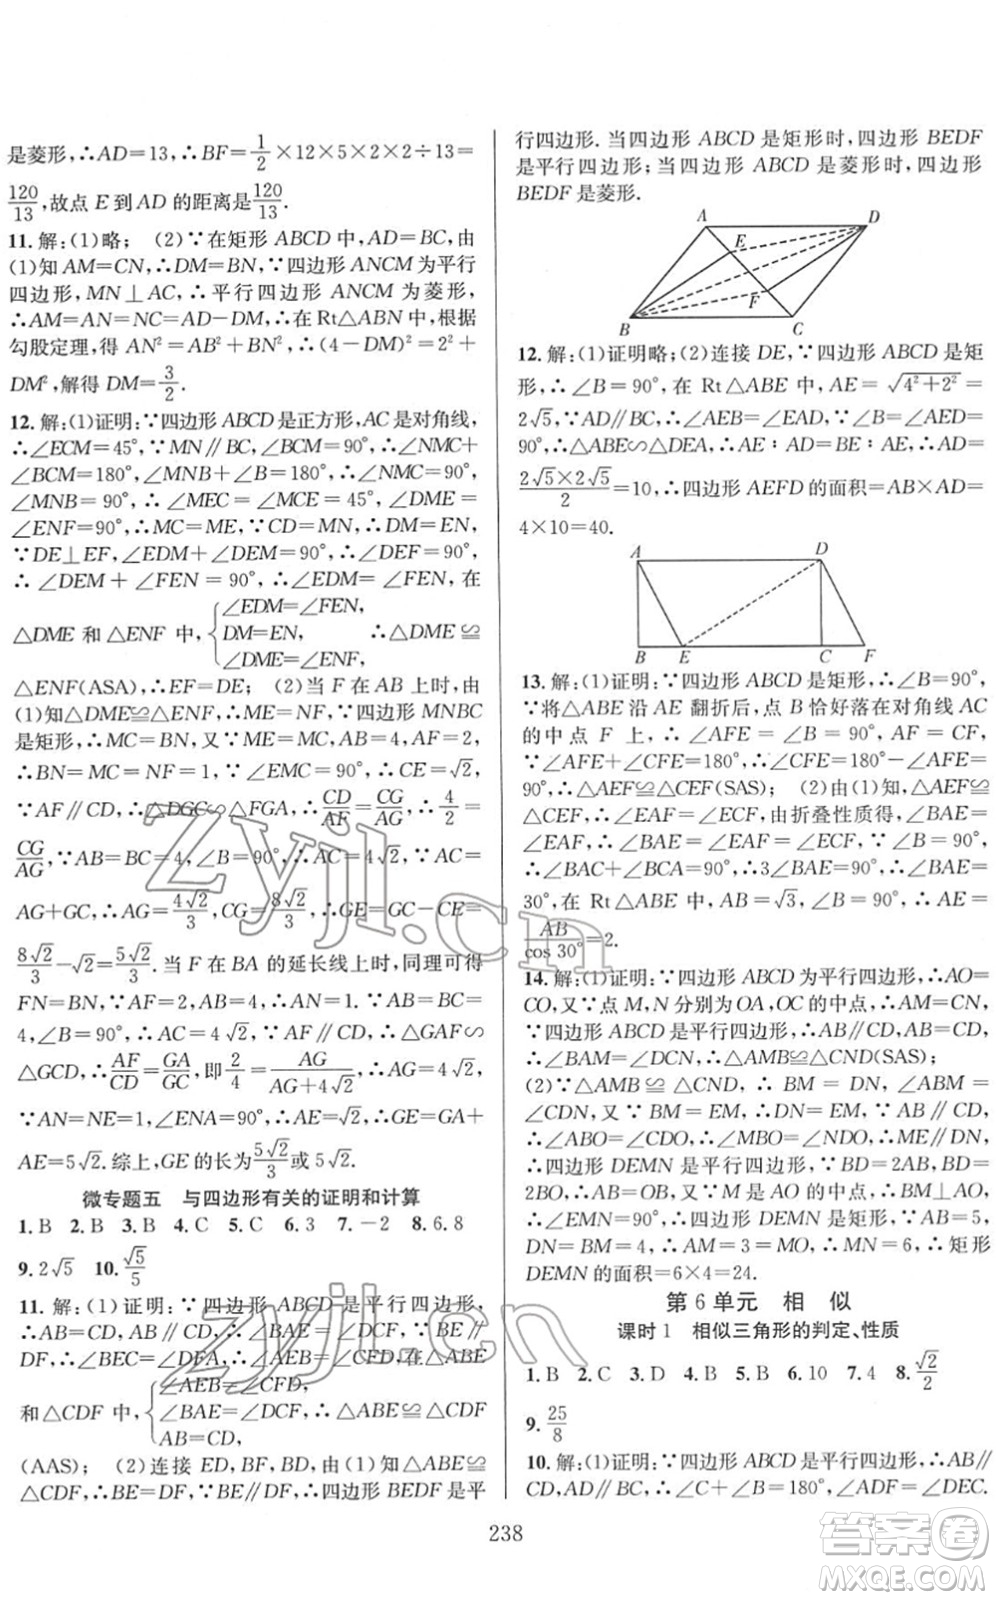 是菱形,∴AD=13,∴BF=1/2×12×5×2×2÷13=
120/13,故点 E 到 AD 的距离是120/13.
11. 解:(1)略; (2)∵在矩形 ABCD 中,AD=BC,由
(1)知 AM=CN,∴DM=BN,∵四边形 ANCM 为平行
四边形,MN⊥AC,∴平行四边形 ANCM 为菱形,
∴AM=AN=NC=AD-DM,∴在 Rt△ABN 中,根据
勾股定理,得 AN²=AB²+BN²,∴(4-DM)²=2²+
DM²,解得 DM=3/2.
12. 解:(1)证明:∵四边形 ABCD 是正方形,AC 是对角线,
∴∠ECM=45°,∵MN∥BC,∠BCM=90°,∴∠NMC+
∠BCM=180°,∠MNB+∠B=180°,∴∠NMC=90°,
∠MNB=90°,∴∠MEC=∠MCE=45°,∠DME=
∠ENF=90°,∴MC=ME,∵CD=MN,∴DM=EN,
∵DE⊥EF,∠EDM+∠DEM=90°,∴∠DEF=90°,
∴∠DEM+∠FEN=90°,∴∠EDM=∠FEN,在
△DME 和△ENF 中,{∠EDM=∠FEN, DM=EN, ∠DME=∠ENF, ∴△DME≌
△ENF(ASA),∴EF=DE; (2)当 F 在 AB 上时,由
(1)知△DME≌△ENF,∴ME=NF,∵四边形 MNBC
是矩形,∴MC=BN,又∵ME=MC,AB=4,AF=2,
∴BN=MC=NF=1,∵∠EMC=90°,∴CE=√2,
∵AF∥CD,∴△DGC∽△FGA,∴CD/AF=CG/AG,∴4/2=
CG/AG,∵AB=BC=4,∠B=90°,∴AC=4√2,∵AC=
AG+GC,∴AG=4√2/3,CG=8√2/3,∴GE=GC-CE=
8√2/3-√2=5√2/3.当 F 在 BA 的延长线上时,同理可得
FN=BN,∵AF=2,AB=4,∴AN=1,∵AB=BC=
4,∠B=90°,∴AC=4√2,∵AF∥CD,∴△GAF∽
△GCD,∴AF/CD=GA/GC,即2/4=AG/(AG+4√2),∴AG=4√2,
∵AN=NE=1,∠ENA=90°,∴AE=√2,∴GE=GA+
AE=5√2.综上,GE 的长为5√2/3或5√2.
微专题五 与四边形有关的证明和计算
1. B 2. B 3. B 4. C 5. C 6. 3 7. -2 8. 6.8
9. 2√5 10. √5/5
11. 解:(1)证明:∵四边形 ABCD 是平行四边形,
∴AB=CD,AB∥CD,∴∠BAE=∠DCF,∵BE∥
DF,∴∠BEC=∠DFA,∴∠AEB=∠CFD,在△ABE
和△CDF 中,{∠AEB=∠CFD, ∠BAE=∠DCF, AB=CD, ∴△ABE≌△CDF
(AAS); (2)连接 ED,BF,BD,∵△ABE≌
△CDF,∴BE=DF,∵BE∥DF,∴四边形 BEDF 是平
行四边形. 当四边形 ABCD 是矩形时,四边形 BEDF
是平行四边形;当四边形 ABCD 是菱形时,四边形
BEDF 是菱形.
A D
E
F
B C
12. 解:(1)证明略;(2)连接 DE,∵四边形 ABCD 是矩
形,∴∠B=90°,在 Rt△ABE 中,AE=√(4²+2²)=
2√5,∵AD∥BC,∴∠AEB=∠EAD,∵∠B=∠AED=
90°,∴△ABE∽△DEA,∴AE∶AD=BE∶AE,∴AD=
2√5×2√5/2=10,∴四边形 AEFD 的面积=AB×AD=
4×10=40.
A D
B E C F
13. 解:(1)证明:∵四边形 ABCD 是矩形,∴∠B=90°,
∵将△ABE 沿 AE 翻折后,点 B 恰好落在对角线 AC
的中点 F 上,∴∠AFE=∠B=90°,AF=CF,
∵∠AFE+∠CFE=180°,∴∠CFE=180°-∠AFE=
90°,∴△AEF≌△CEF(SAS); (2)由(1)知,△AEF≌
△CEF,∴∠EAF=∠ECF,由折叠性质得,∠BAE=
∠EAF,∴∠BAE=∠EAF=∠ECF,∵∠B=90°,
∴∠BAC+∠BCA=90°,∴3∠BAE=90°,∴∠BAE=
30°,在 Rt△ABE 中,AB=√3,∠B=90°,∴AE=
AB/cos 30°=2.
14. 解:(1)证明:∵四边形 ABCD 为平行四边形,∴AO=
CO,又∵点 M,N 分别为 OA,OC 的中点,∴AM=CN,
∵四边形 ABCD 是平行四边形,∴AB∥CD,AB=CD,
∴∠BAM=∠DCN,∴△AMB≌△CND(SAS);
(2)∵△AMB≌△CND,∴BM=DN,∠ABM=
∠CDN,又∵BM=EM,∴DN=EM,∵AB∥CD,
∴∠ABO=∠CDO,∴∠MBO=∠NDO,∴ME∥DN,
∴四边形 DEMN 是平行四边形,∵BD=2AB,BD=
2BO,∴AB=OB,又∵M 是 AO 的中点,∴BM⊥AO,
∴∠EMN=90°,∴四边形 DEMN 是矩形,∵AB=5,
DN=BM=4,∴AM=3=MO,∴MN=6,∴矩形
DEMN 的面积=6×4=24.
第 6 单元 相 似
课时 1 相似三角形的判定、性质
1. B 2. C 3. D 4. B 5. B 6. 10 7. 4 8. √2/2
9. 25/8
10. 解:(1)证明:∵四边形 ABCD 是平行四边形,∴AB∥
CD,AD∥BC,∴∠C+∠B=180°,∠ADF=∠DEC.
238
zyjl.cn
zyjl.cn
答案圈
MXQE.COM